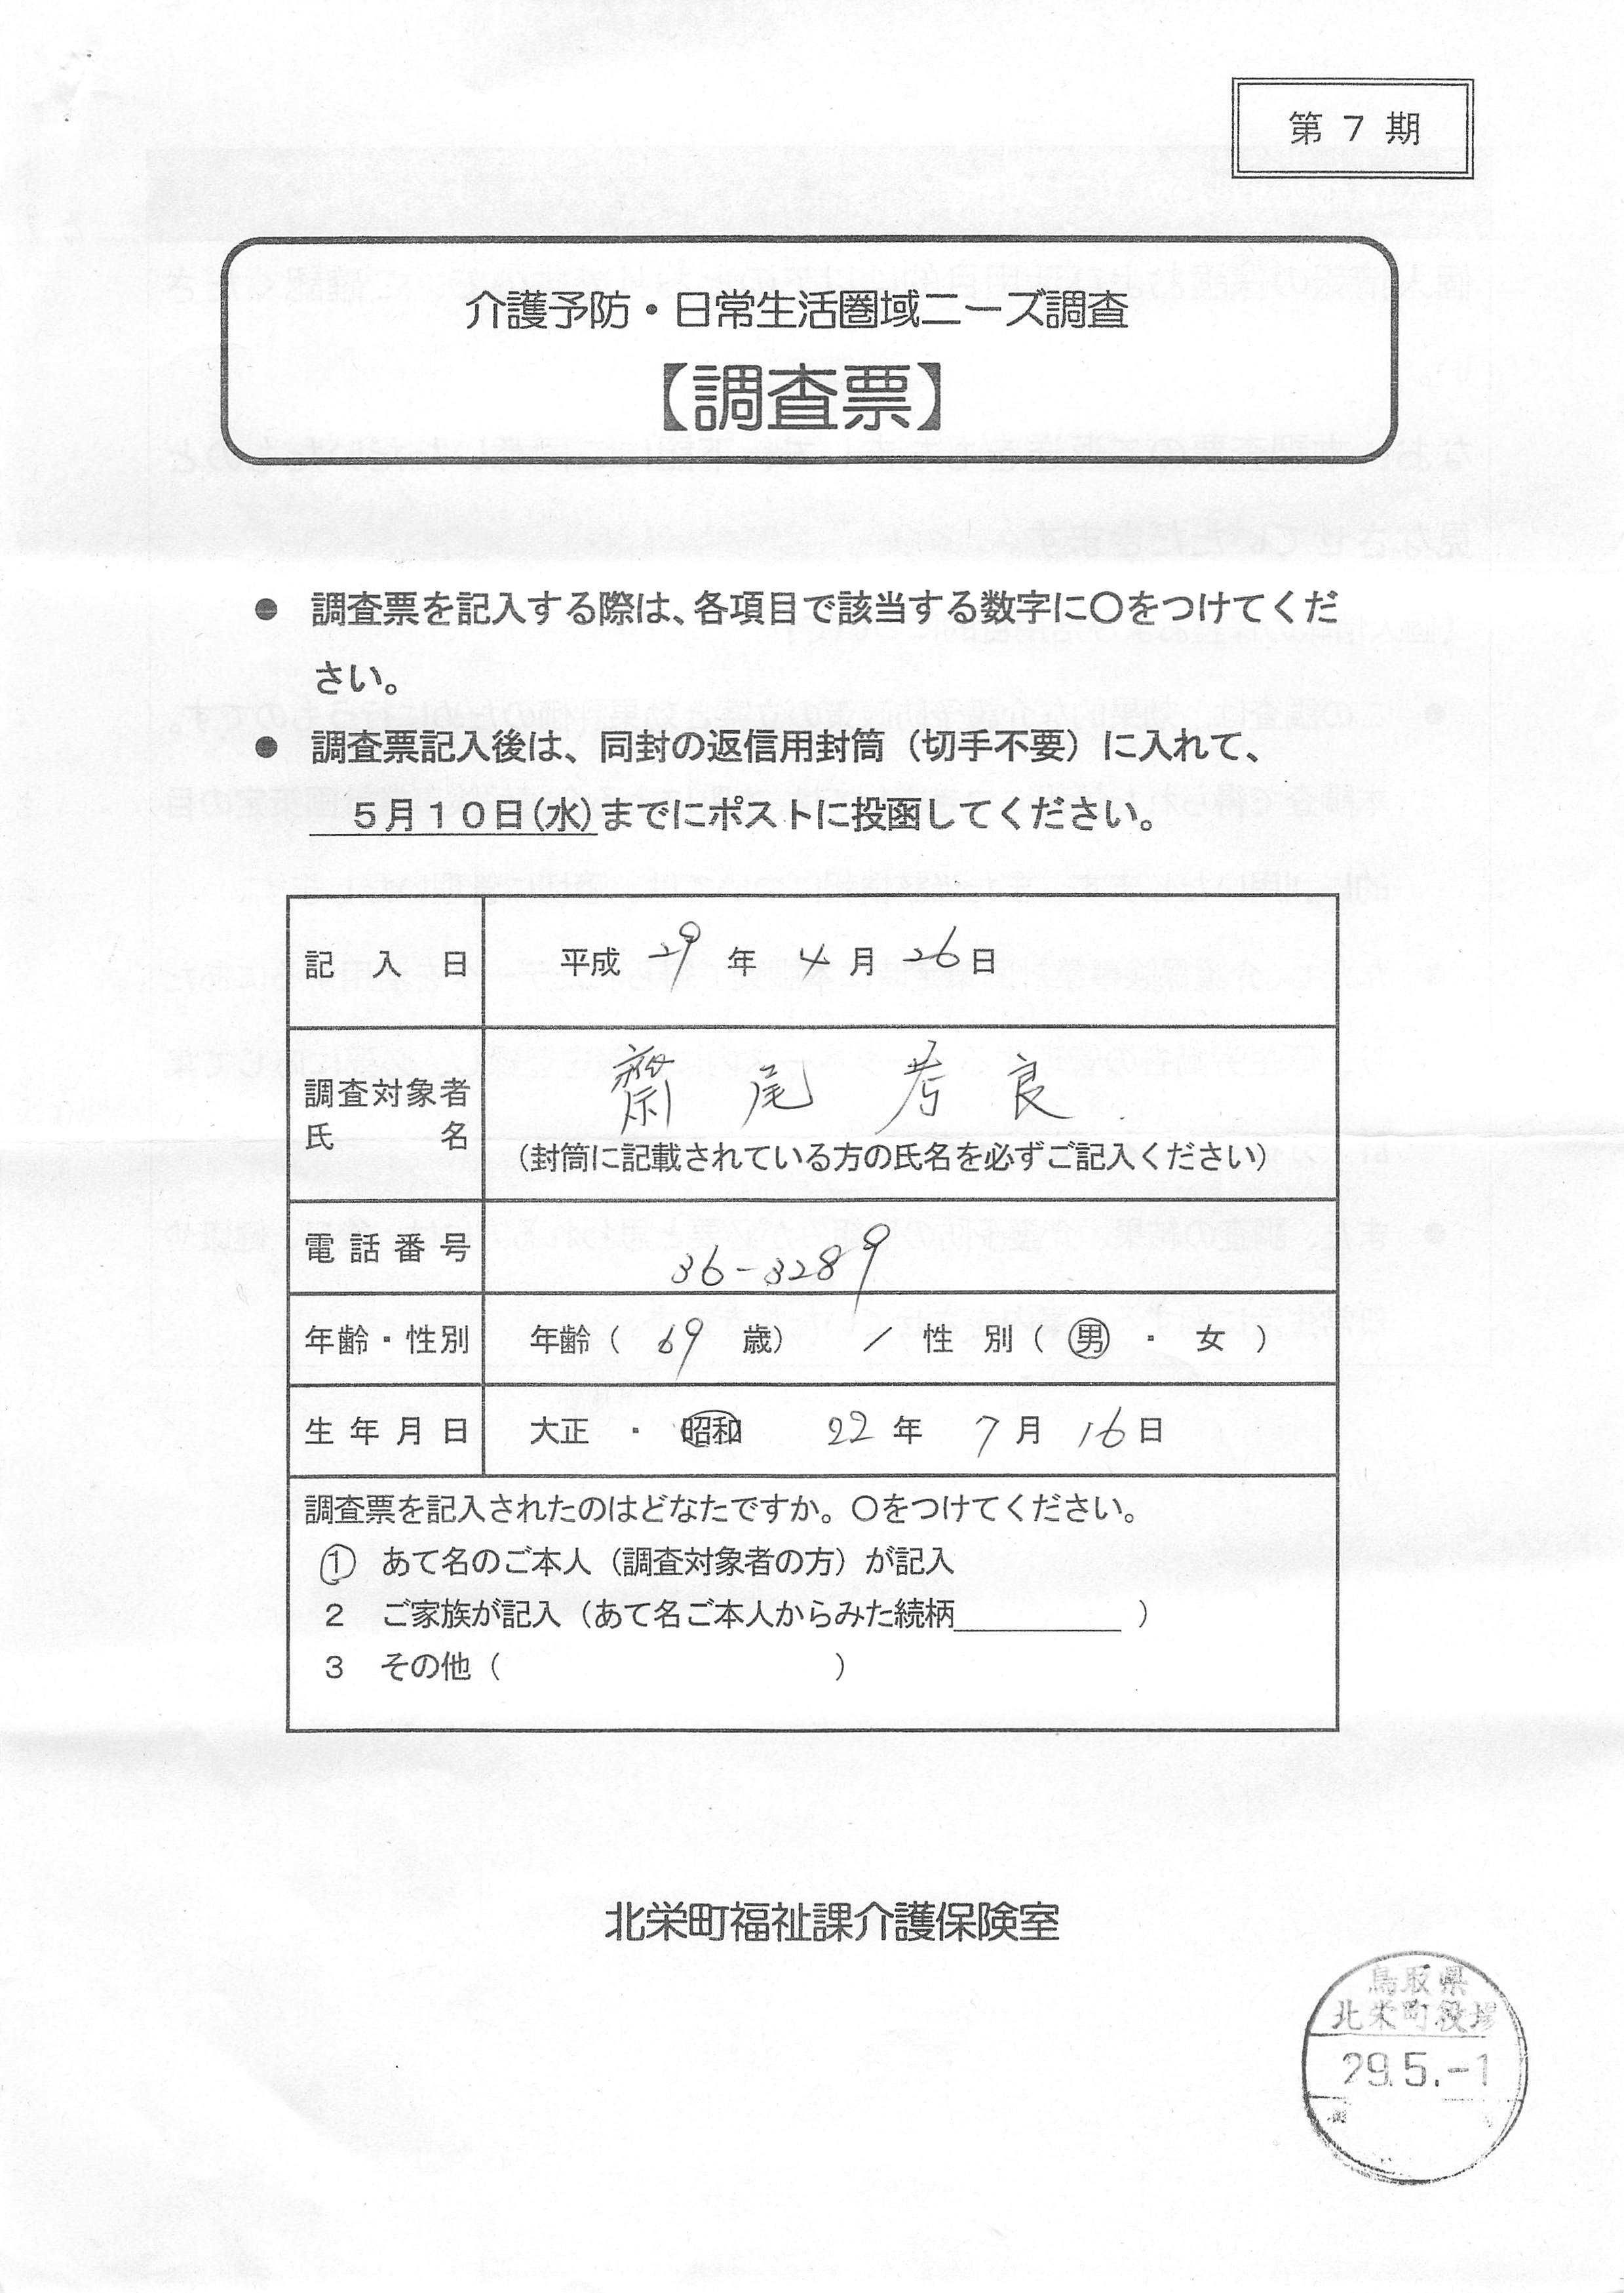 第 7 期
介護予防・日常生活圏域ニーズ調査
【調査票】
● 調査票を記入する際は、各項目で該当する数字に○をつけてくだ
さい。
● 調査票記入後は、同封の返信用封筒（切手不要）に入れて、
5月10日(水)までにポストに投函してください。
記入日 平成 29 年 4 月 26 日
調査対象者 齋尾考良
氏名 (封筒に記載されている方の氏名を必ずご記入ください)
電話番号 36-3289
年齢・性別 年齢（ 69 歳） ／ 性 別（ 男 ・ 女 ）
生年月日 大正 ・ 昭和 22 年 7 月 16 日
調査票を記入されたのはどなたですか。○をつけてください。
1 あて名のご本人（調査対象者の方）が記入
2 ご家族が記入（あて名ご本人からみた続柄＿＿＿＿＿ ）
3 その他（ ）
北栄町福祉課介護保険室
鳥取県
北栄町役場
29.5.-1